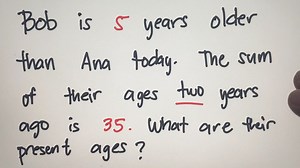 Bob is 5 years older
than Ana today. The sum
of their ages two years
ago is 35. What are their
present ages?